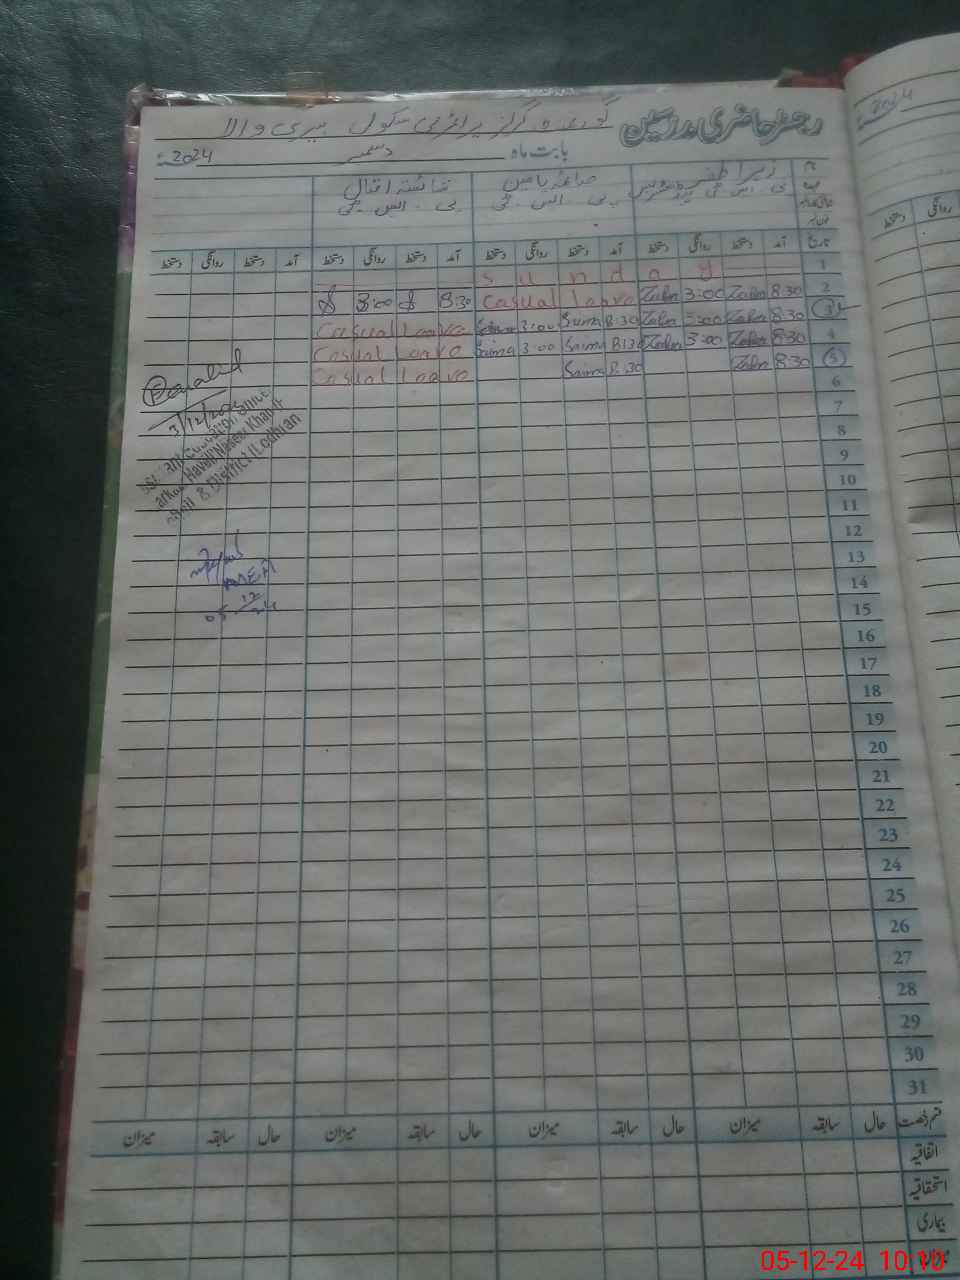 رجسٹر حاضری مدرسین گورنمنٹ گرلز پرائمری سکول بیری والا
بابت ماہ دسمبر 2024ء
2024
زہرا ظفر صائمہ یاسمین شائستہ اقبال
پی۔ایس۔ٹی پی۔ایس۔ٹی
تاریخ آمد دستخط روانگی دستخط آمد دستخط روانگی دستخط آمد دستخط روانگی دستخط آمد دستخط روانگی دستخط
روانگی دستخط
1 Sunday
2 8:30 Zahra 3:00 Zahra Casual Leave 8:30 3:00
3 8:30 Zahra 3:00 Zahra 8:30 Saima 3:00 Saima Casual Leave
4 8:30 Zahra 3:00 Zahra 8:30 Saima 3:00 Saima Casual Leave
5 8:30 Zahra 8:30 Saima Casual Leave
6
7
8
9
10
11
12
13
14
15
16
17
18
19
20
21
22
23
24
25
26
27
28
29
30
31
3/12/2024
District (Lodhran
MEA
05/12/24
قسم رخصت حال سابقہ میزان حال سابقہ میزان حال سابقہ میزان حال سابقہ میزان
اتفاقیہ
استحقاقیہ
بیماری
میزان
05-12-24 10:10